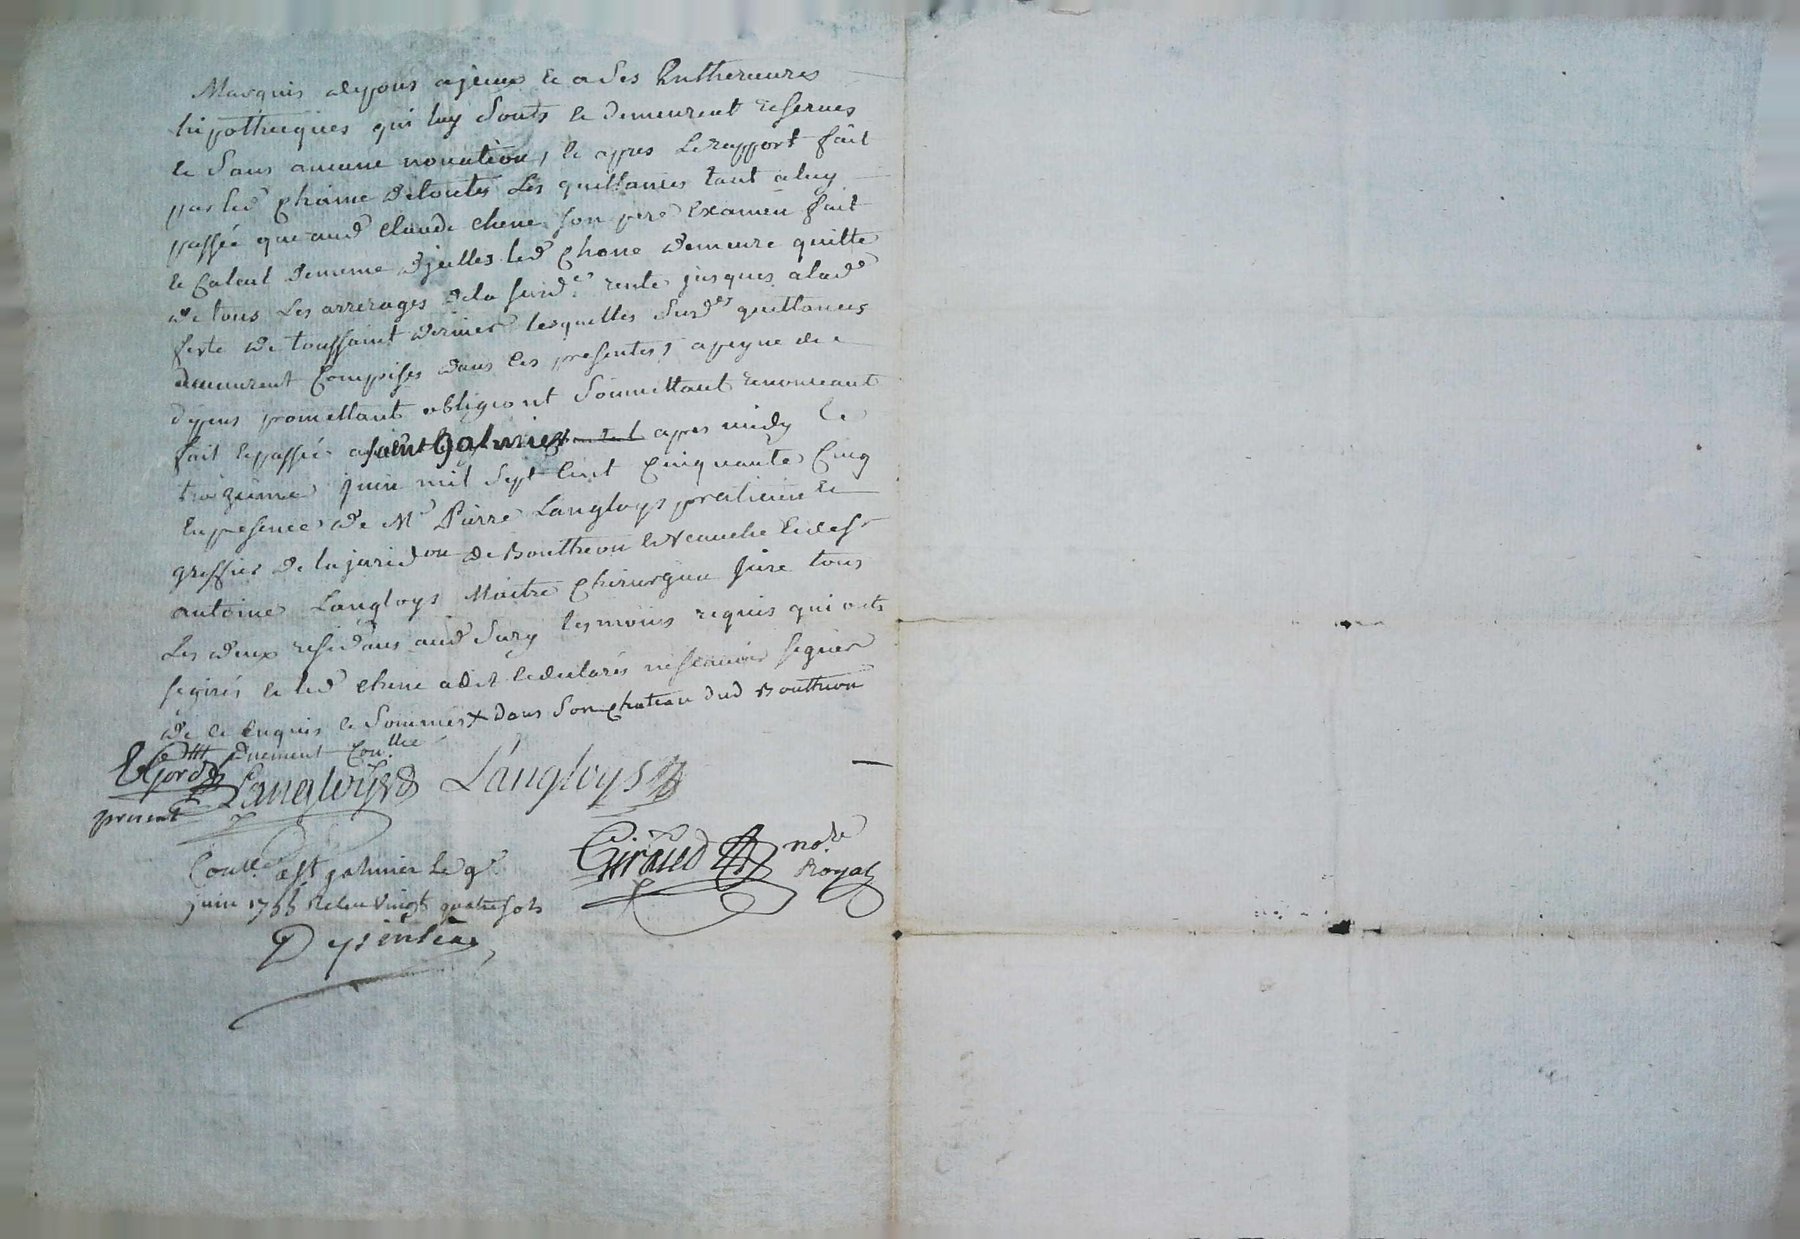 Marquis depous ajeune et a ses Antherieures
hipotheques qui luy Sonts et demeurent reservés
et Sans aucune novation, et apres Le rapport fait
par led Chaine De toutes Les quittances tant a luy
passée que aud Claude Chene son pere Examen fait
et Calcul Demeure D'jcelles led Chene demeure quitte
de tous Les arrerages De la susd.e rente jusques a lad.e
feste de toussaint dernier lesquelles Susd.es quittances
demeurent Comprises dans les presentes, a peyne de
depens promettant obligeant Soumettant renonceant
fait et passée a saint Galmier apres midy le
troizieme juin mil Sept Cent Cinquante Cinq
En presence de Mr Pierre Langloys praticien et
greffier De la jurid.on De Boutheon et Veauche et de Sr
antoine Langloys Maitre Chirurgien Juré tous
Les deux residans aud Sury tesmoins requis qui onts
signés et led Chene a dit et declarés ne scavoir signer
de ce Enquis et Sommés + dans Son Chateau dud Boutheon
Duement Con.llee
Langloys Langloys
present
Giraud no.re
Royal
Con.lle a St galmier Le 9e
juin 1755 Recu vingt quatre sols